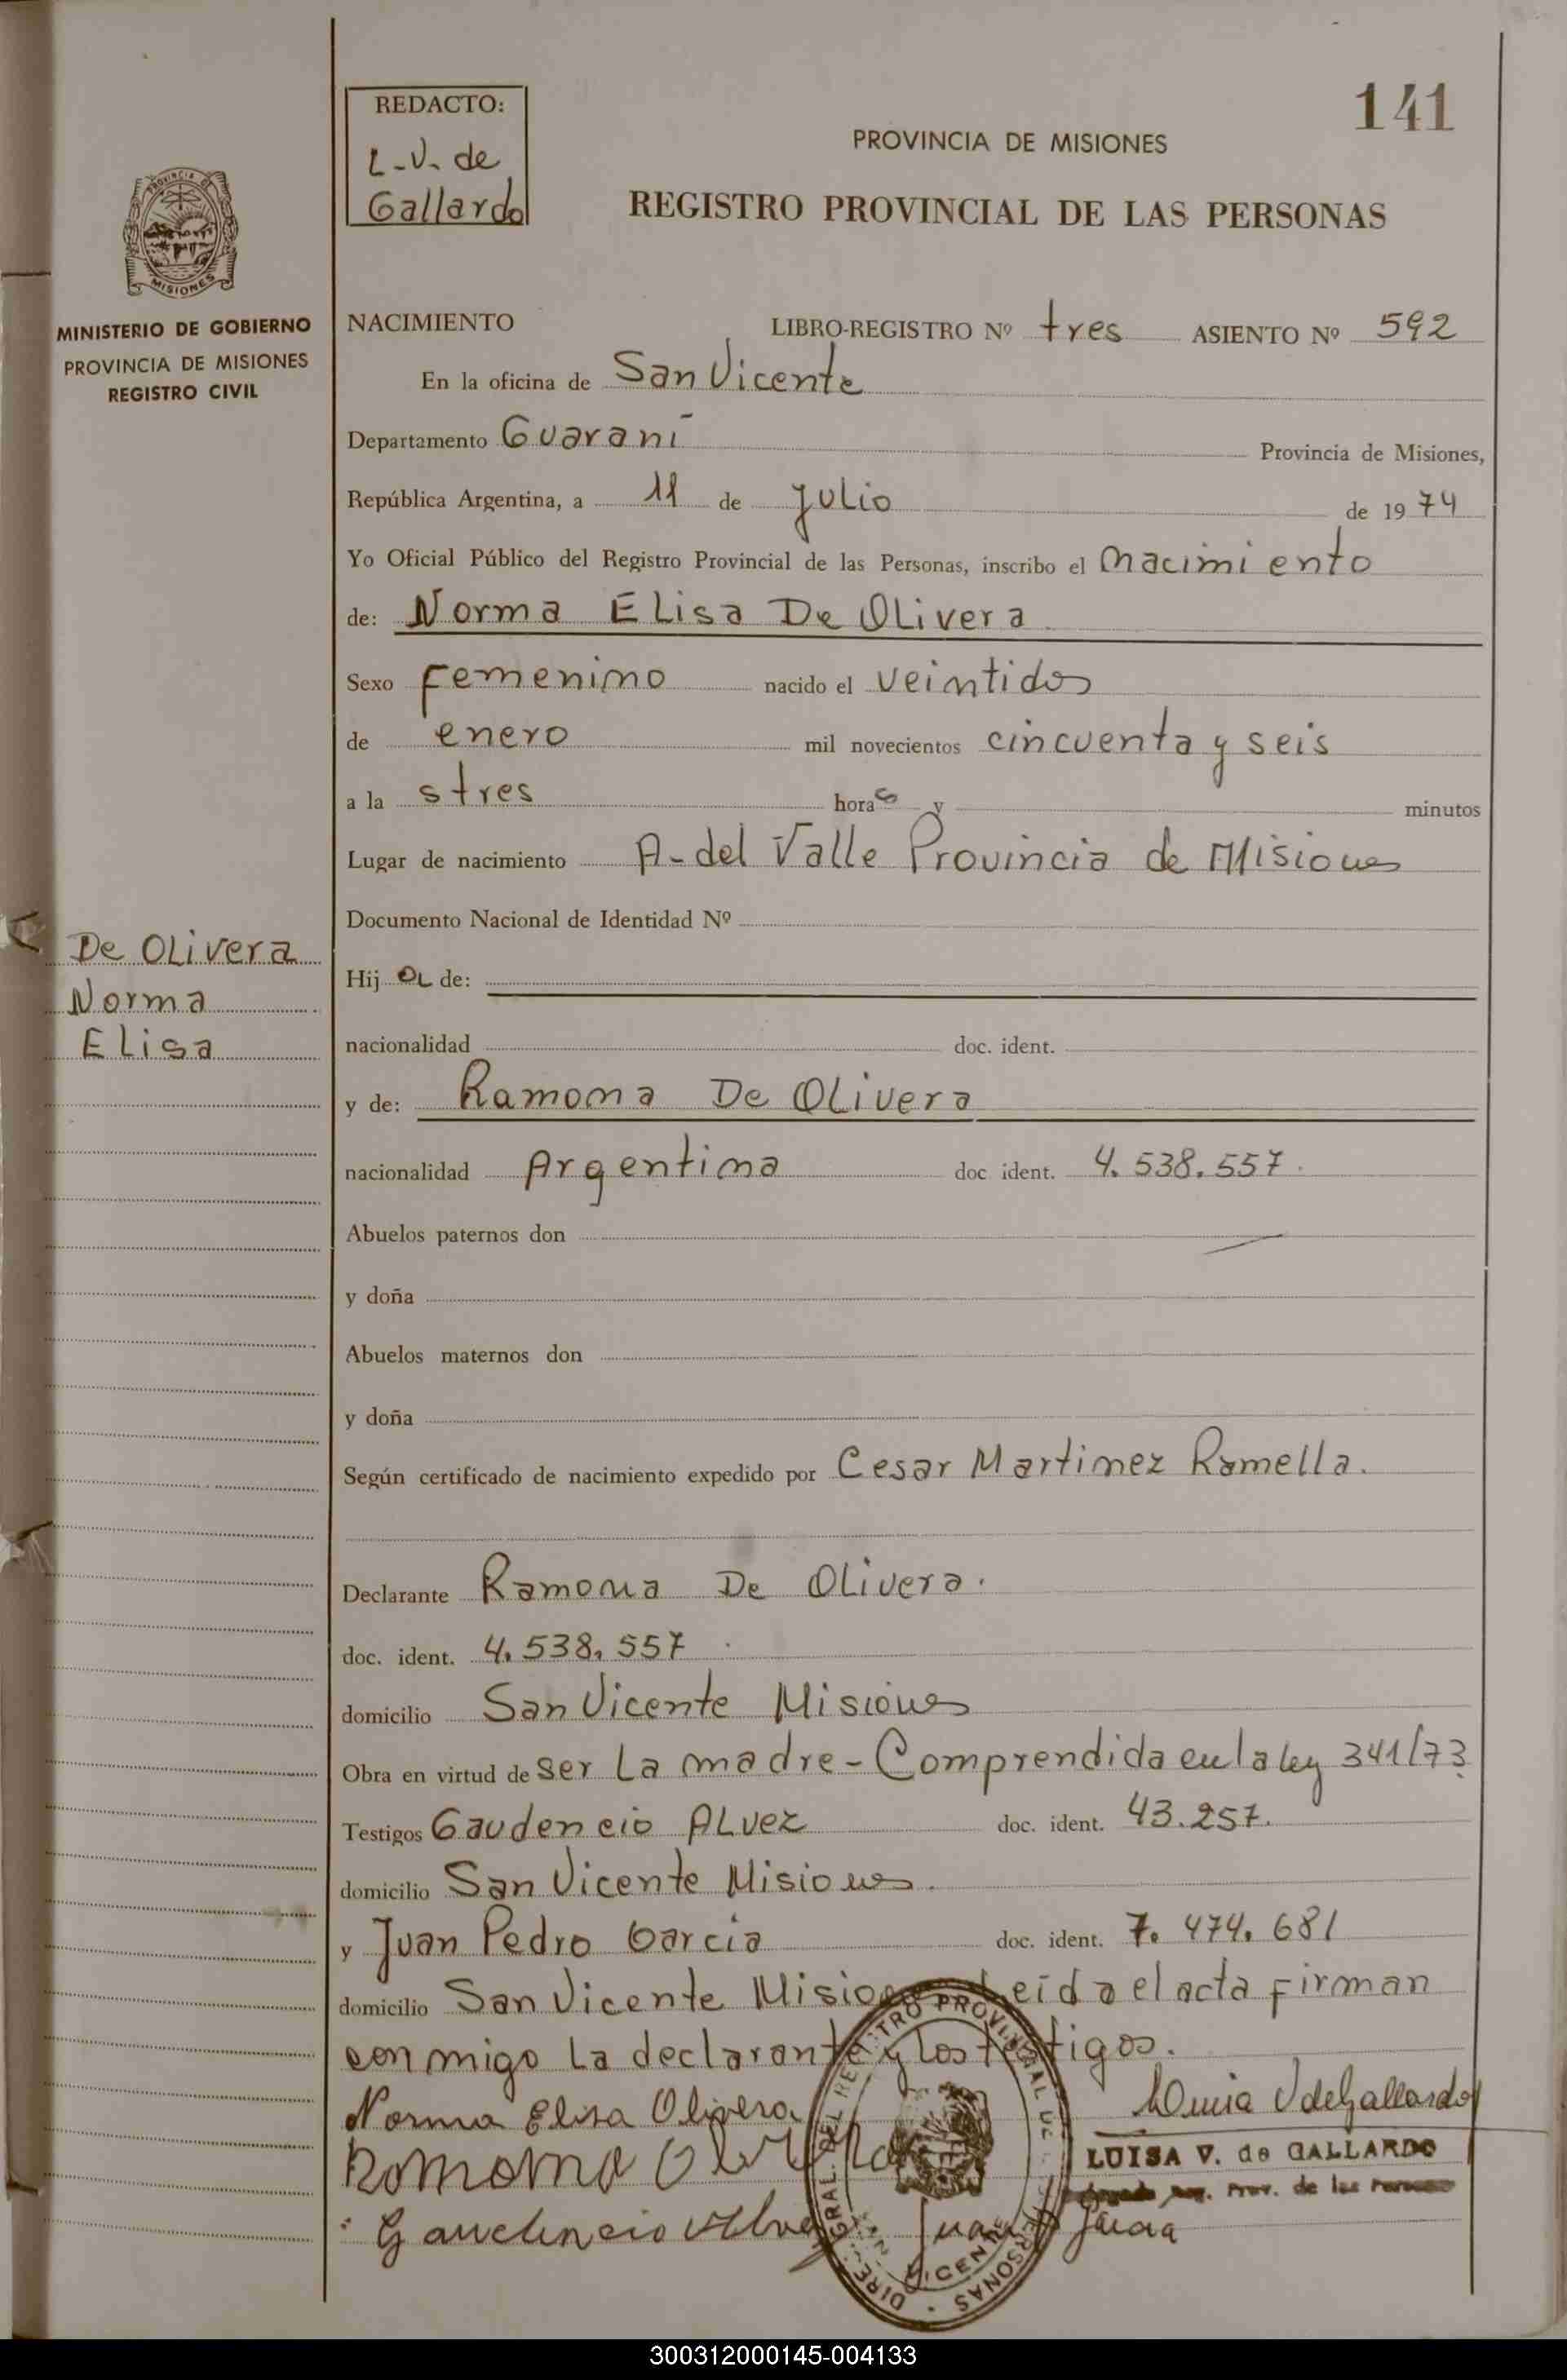 141
REDACTO:
L.V. de
Gallardo
PROVINCIA DE MISIONES
REGISTRO PROVINCIAL DE LAS PERSONAS
PROVINCIA DE
MISIONES
MINISTERIO DE GOBIERNO
PROVINCIA DE MISIONES
REGISTRO CIVIL
NACIMIENTO LIBRO-REGISTRO Nº tres ASIENTO Nº 592
En la oficina de San Vicente
Departamento Guaraní Provincia de Misiones,
República Argentina, a 11 de julio de 1974
Yo Oficial Público del Registro Provincial de las Personas, inscribo el nacimiento
de: Norma Elisa De Olivera
Sexo femenino nacido el veintidos
de enero mil novecientos cincuenta y seis
a la s tres horas y minutos
Lugar de nacimiento A. del Valle Provincia de Misiones
Documento Nacional de Identidad Nº
De Olivera
Norma
Elisa
Hija de:
nacionalidad doc. ident.
y de: Ramona De Olivera
nacionalidad Argentina doc. ident. 4.538.557.
Abuelos paternos don
y doña
Abuelos maternos don
y doña
Según certificado de nacimiento expedido por Cesar Martinez Ramella.
Declarante Ramona De Olivera.
doc. ident. 4.538.557.
domicilio San Vicente Misiones
Obra en virtud de ser La madre - Comprendida en la ley 341/73.
Testigos Gaudencio Alvez doc. ident. 43.257.
domicilio San Vicente Misiones.
y Juan Pedro Garcia doc. ident. 7.474.681
domicilio San Vicente Misiones Leída el acta firman
conmigo La declarante y los testigos.
Norma Elisa Olivera
Ramona Olivera
Gaudencio Alvez
Juan P Garcia
Luisa V de Gallardo
LUISA V. de GALLARDO
Reg. Prov. de las Personas
DIREC. GRAL. DEL REGISTRO PROVINCIAL DE LAS PERSONAS
SAN VICENTE
300312000145-004133